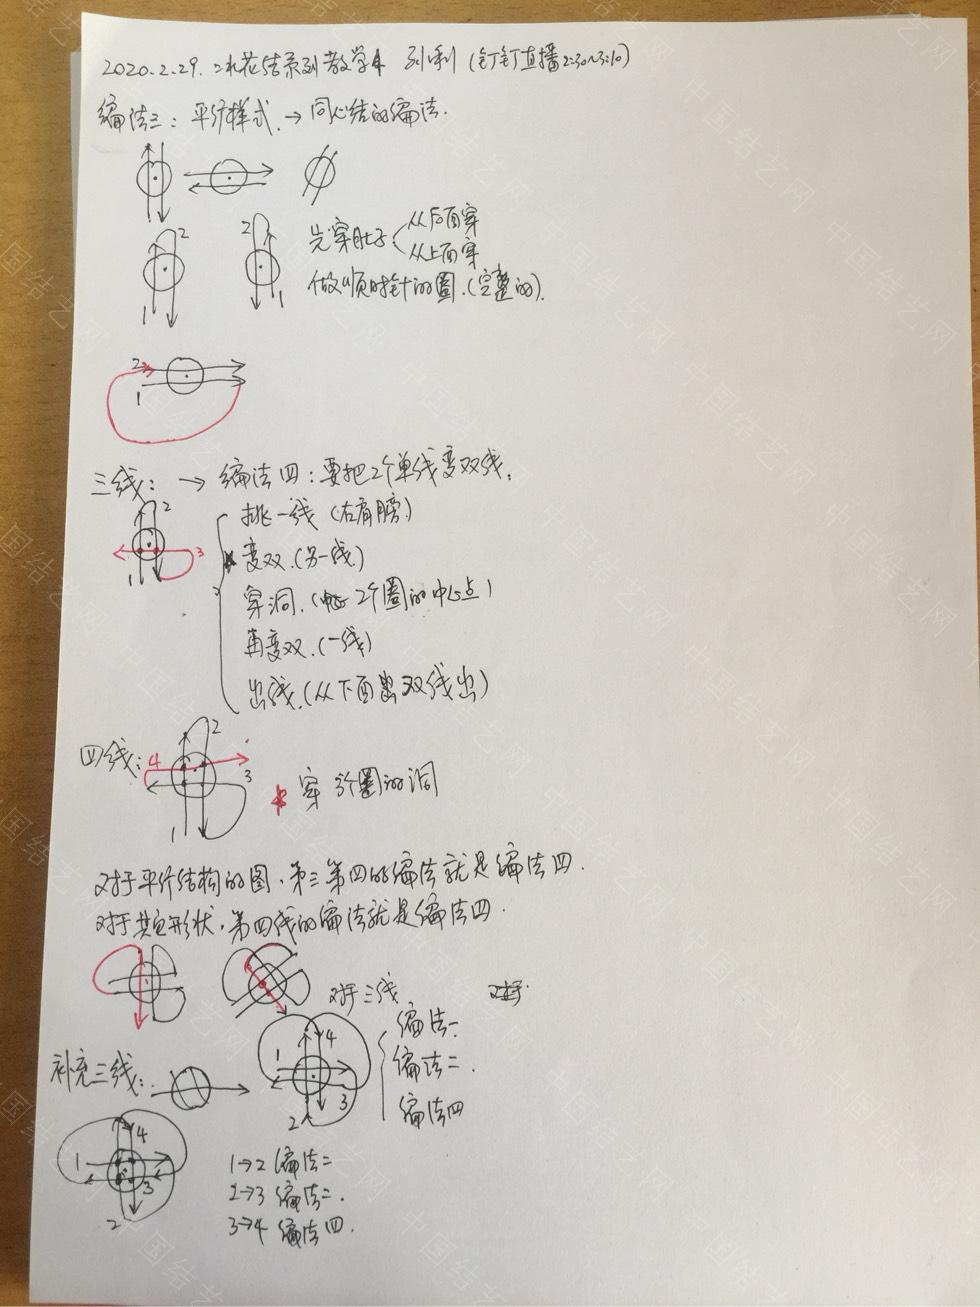 2020.2.29. 二水花结系列教学4 列利 (钉钉直播2:30~3:10)
编法三：平行样式.→同心结的编法.
2
2
1
1
先穿肚子 从后面穿
从上面穿
做顺时针的圈.(完整的).
2
1
三线：→ 编法四：要把2个单线变双线.
2
3
1
挑一线 (右肩膀)
变双.(另一线)
穿洞.( 2个圈的中心点)
再变双.(一线)
出线.(从下面 双线出)
四线：
2
4
3
1
穿 个圈的洞
对于平行结构的图.第三第四的编法就是编法四.
对于其它形状.第四线的编法就是编法四.
对于三线
对于.
补充三线：
1
4
2
3
编法一
编法二.
编法四
1
4
2
3
1→2 编法二
2→3 编法二.
3→4 编法四.
中国结艺网